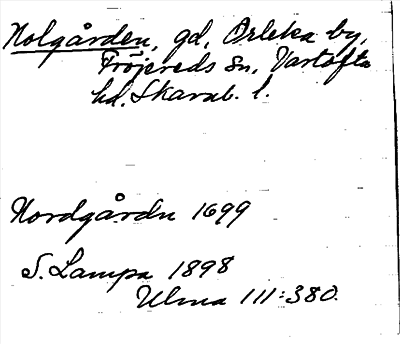 Nolgården, gd, Arleka by,
Fröjereds sn, Vartofta
hd. Skarab. l.
Nordgårdn 1699
S. Lampa 1898
Ulma 111:380.